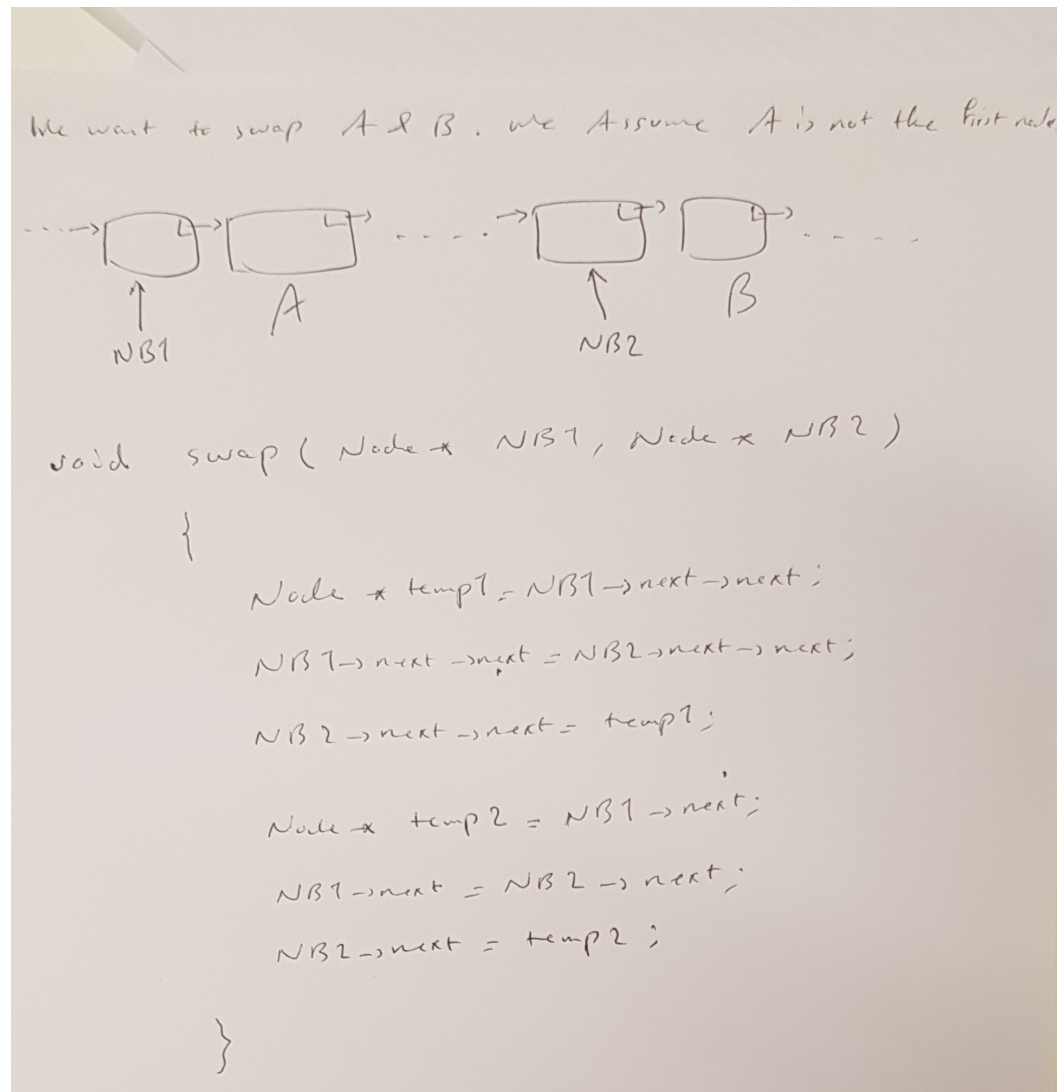 We want to swap A & B. we Assume A is not the first node
A
B
NB1
NB2
void swap ( Node * NB1, Node * NB2 )
{
Node * temp1 = NB1->next->next;
NB1->next->next = NB2->next->next;
NB2->next->next = temp1;
Node * temp2 = NB1->next;
NB1->next = NB2->next;
NB2->next = temp2;
}